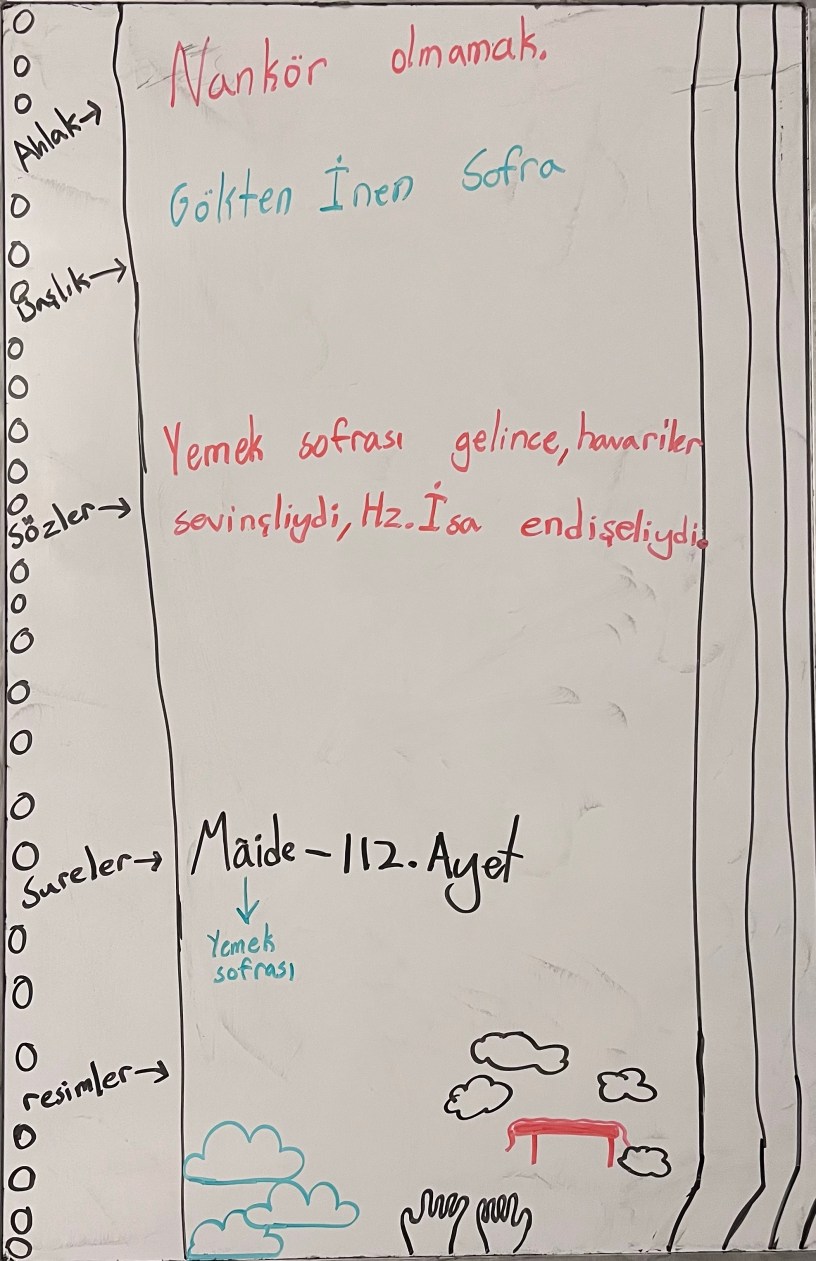 Nankör olmamak.
Ahlak→
Gökten İnen Sofra
Başlık→
Yemek sofrası gelince, havariler
sevinçliydi, Hz. İsa endişeliydi.
sözler→
Mãide-112. Ayet
Sureler→
Yemek
sofrası
resimler→